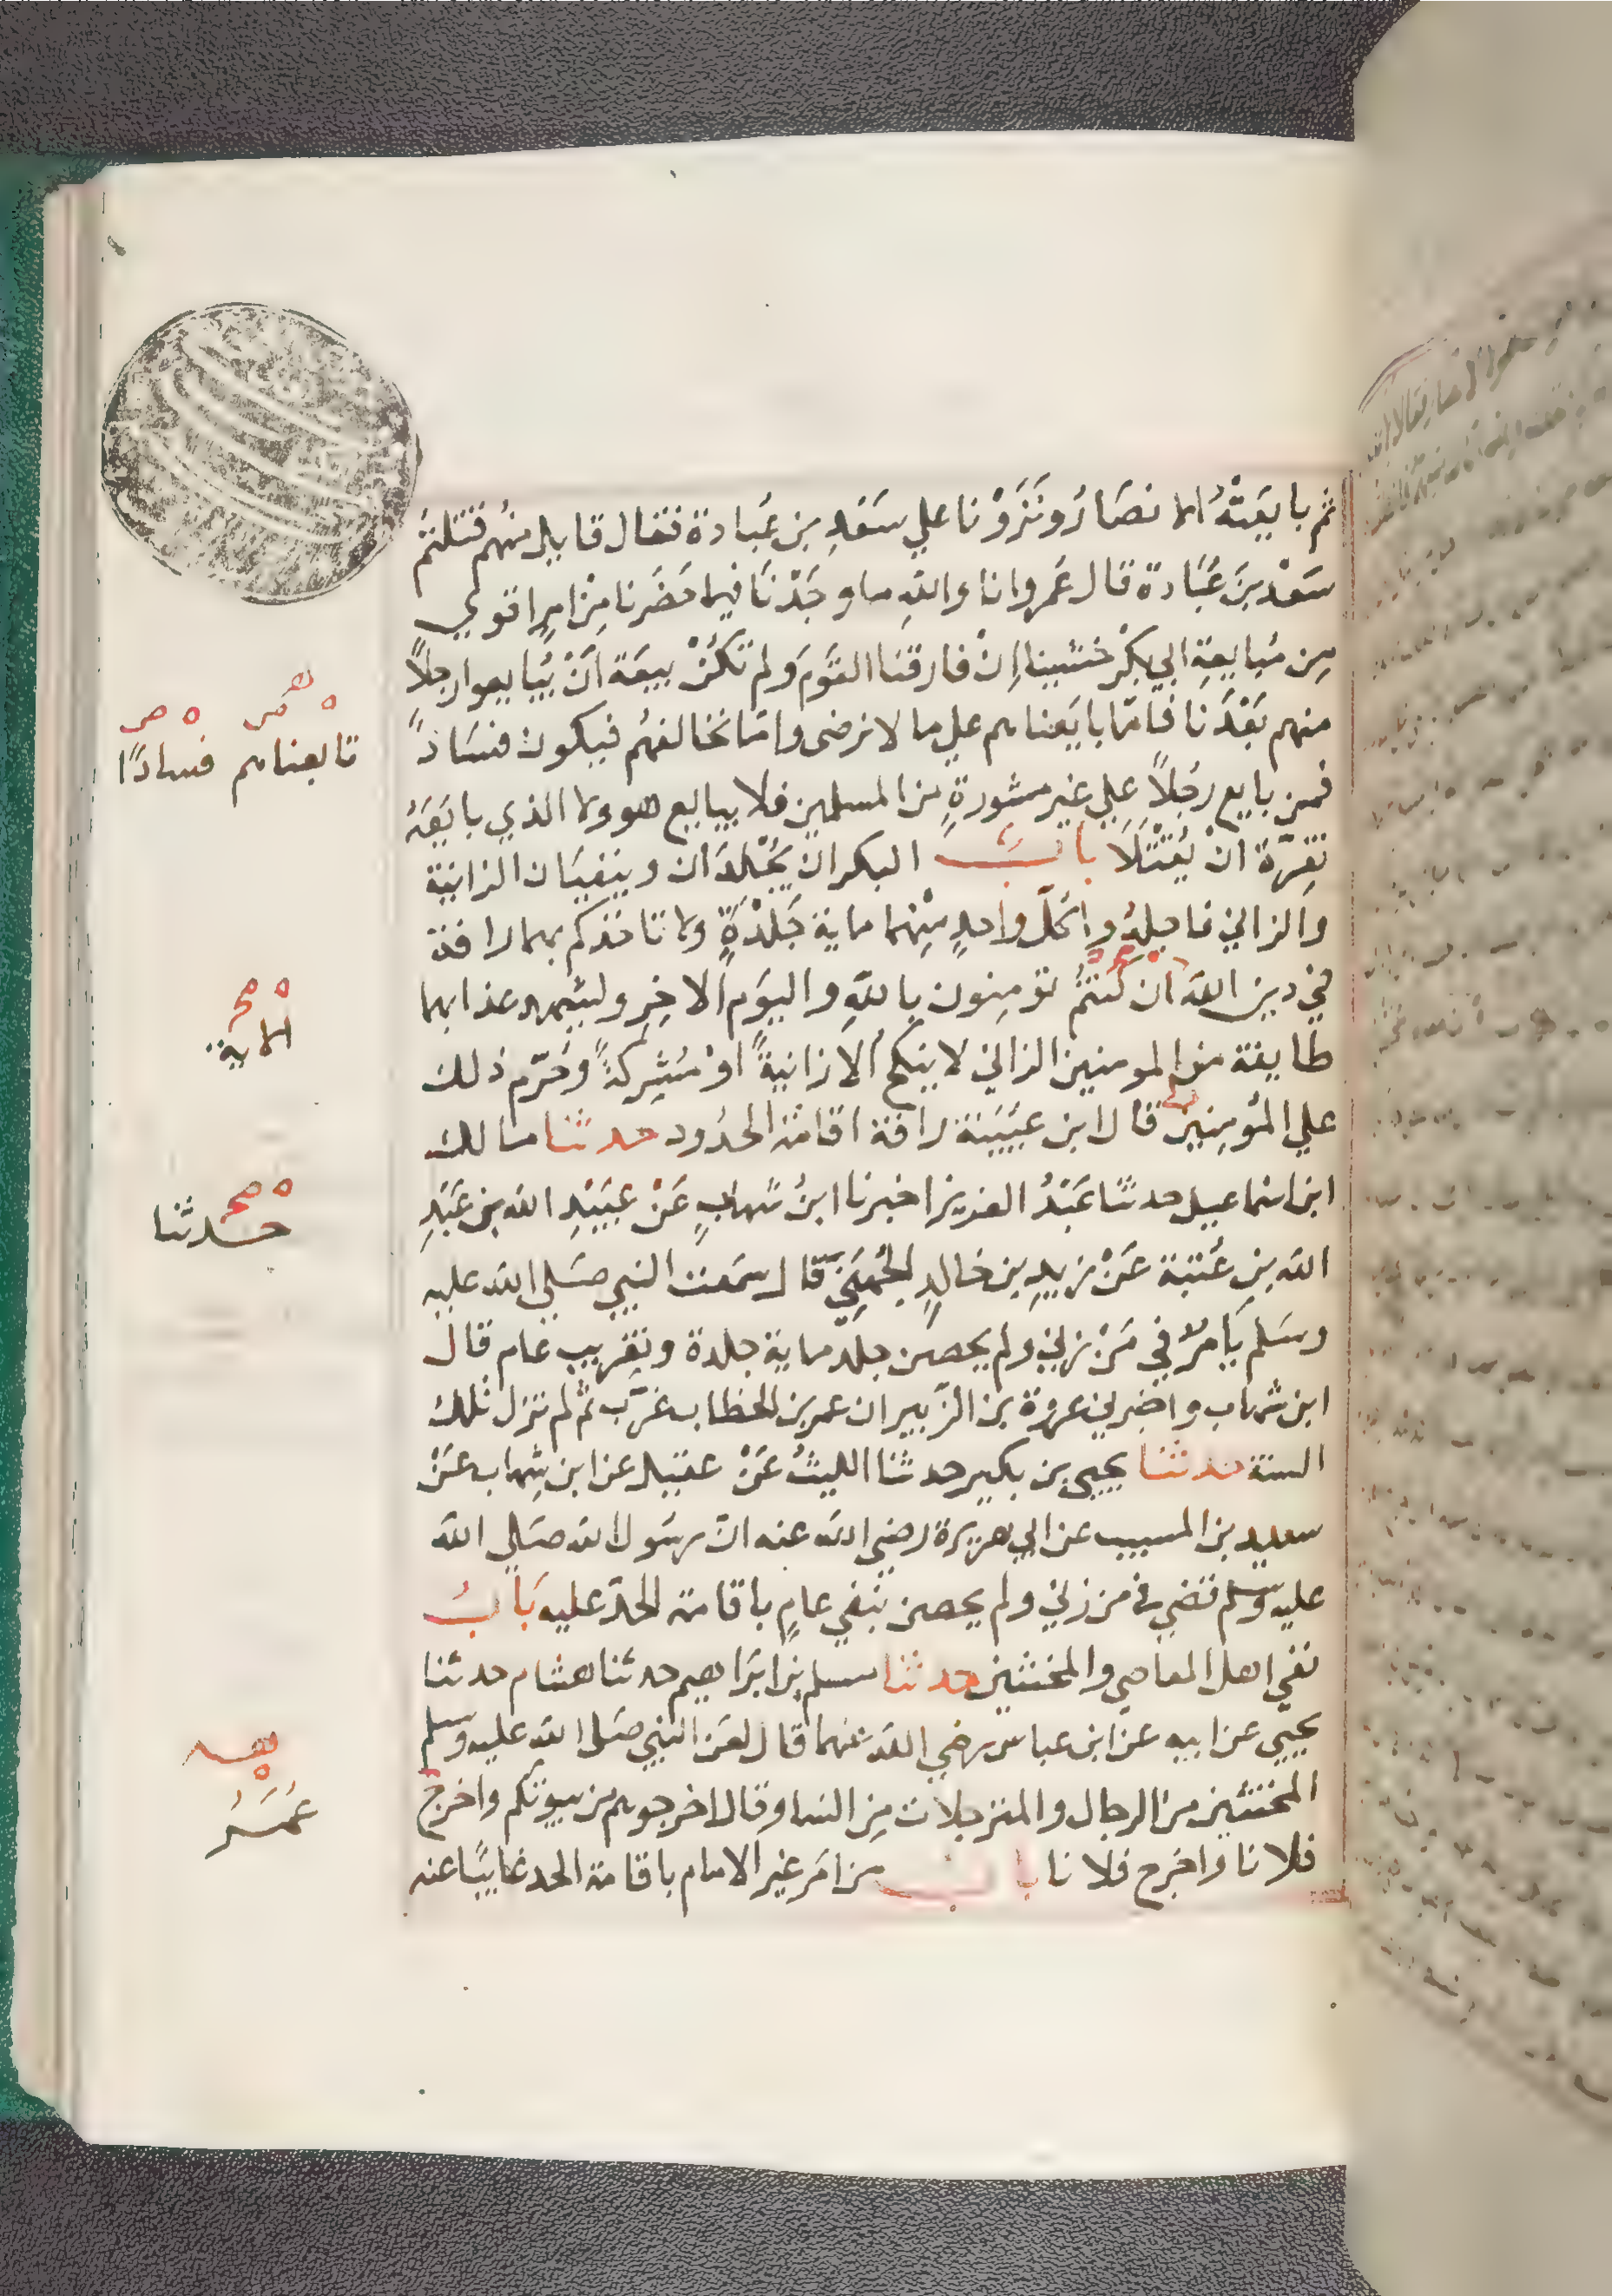 ثم بايَعَتْهُ الانصَارُ ونَزَوْنا علي سَعَدِ بن عُبَادة فقال قايل منهم قتلتم
سَعْدَ بنَ عُبَادة قال عُمَر وانا والله ما وجَدْنَا فيما حَضَرنا مِن امرٍ اقوي
مِن مُبايعةِ ابي بكرٍ خشينا اِنْ فارقنا القَومَ ولم تَكُنْ بيعَة اَنْ يُبايعوا رجلاً
منهم بَعْدَنا فامّا بايَعناهم علي ما لا نرضى وامّا نخالفهُم فيكون فسَاداً
فمن بايع رجُلاً علي غير مشورةٍ من المسلمين فلا يبايع هو ولا الذي بايَعَهُ
تَغِرّة انْ يُقتَلَا بابُ البكران يُجْلَدَان وينفيَان الزانية
والزاني فاجلِدُوا كُلّ واحدٍ مِنْهما ماية جَلْدَةٍ ولا تاخذكم بهما رافة
في دين الله ان كُنتُمْ تؤمِنون باللهِ واليوَم الاخِرِ وليشهد عذابهما
طايفة من المومنين الزاني لا ينكحُ الا زانيةً اوْ مُشِركةً وحُرّم ذلك
علي المُؤمِنين قال ابن عُيَيْنة رافة اقامة الحدُود حدثنا مالك
ابن اسماعيل حدثنَا عَبْدُ العزيز اخبرنا ابنُ شهابٍ عَنْ عُبَيْدِ الله بن عَبْدِ
الله بنِ عُتبة عَنْ زيدِ بن خالدٍ الجُهَنِيّ قال سمعت النبي صَلي الله عليه
وسَلم يَامُرُ في مَنْ زني ولم يحصن جلد ماية جلدة وتغريب عام قال
ابن شهاب واخبرني عروة بن الزّبير ان عمر بن الخطاب غرّب ثم لم تزل تلك
السنة حدثنا يحيي بن بكير حدثنا الليثُ عَنْ عقيل عن ابن شِهاب عَنْ
سعيد بن المسيب عن ابي هريرة رضي الله عنه انّ رسُول الله صَلي الله
عليه وسلم قضي في من زني ولم يحصن بنفي عامٍ باقامة الحدّ عليه بَابُ
نفي اهل المعاصي والمخنثين حدثنا مسلم بن ابرَاهيم حدثنا هشام حدثنا
يحيي عن ابيه عن ابن عباس رضي الله عنهما قال لعَن النبي صَلي الله عليه وسلم
المخنثين من الرجال والمترجلات مِن النسا وقال اخرجوهم من بيوتكم واخرج
فلانا واخرج فلانا بابُ من امَر غير الامام باقامة الحد غايبًا عنه
تابعناهم فسادًا
الاية
حدثنا
عُمَرُ